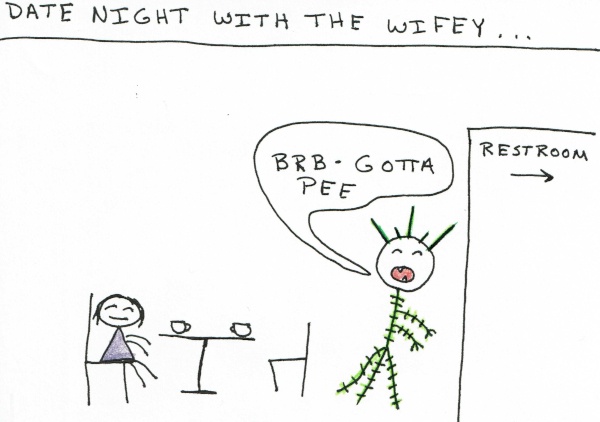 DATE NIGHT WITH THE WIFEY...
BRB - GOTTA
PEE
RESTROOM
→